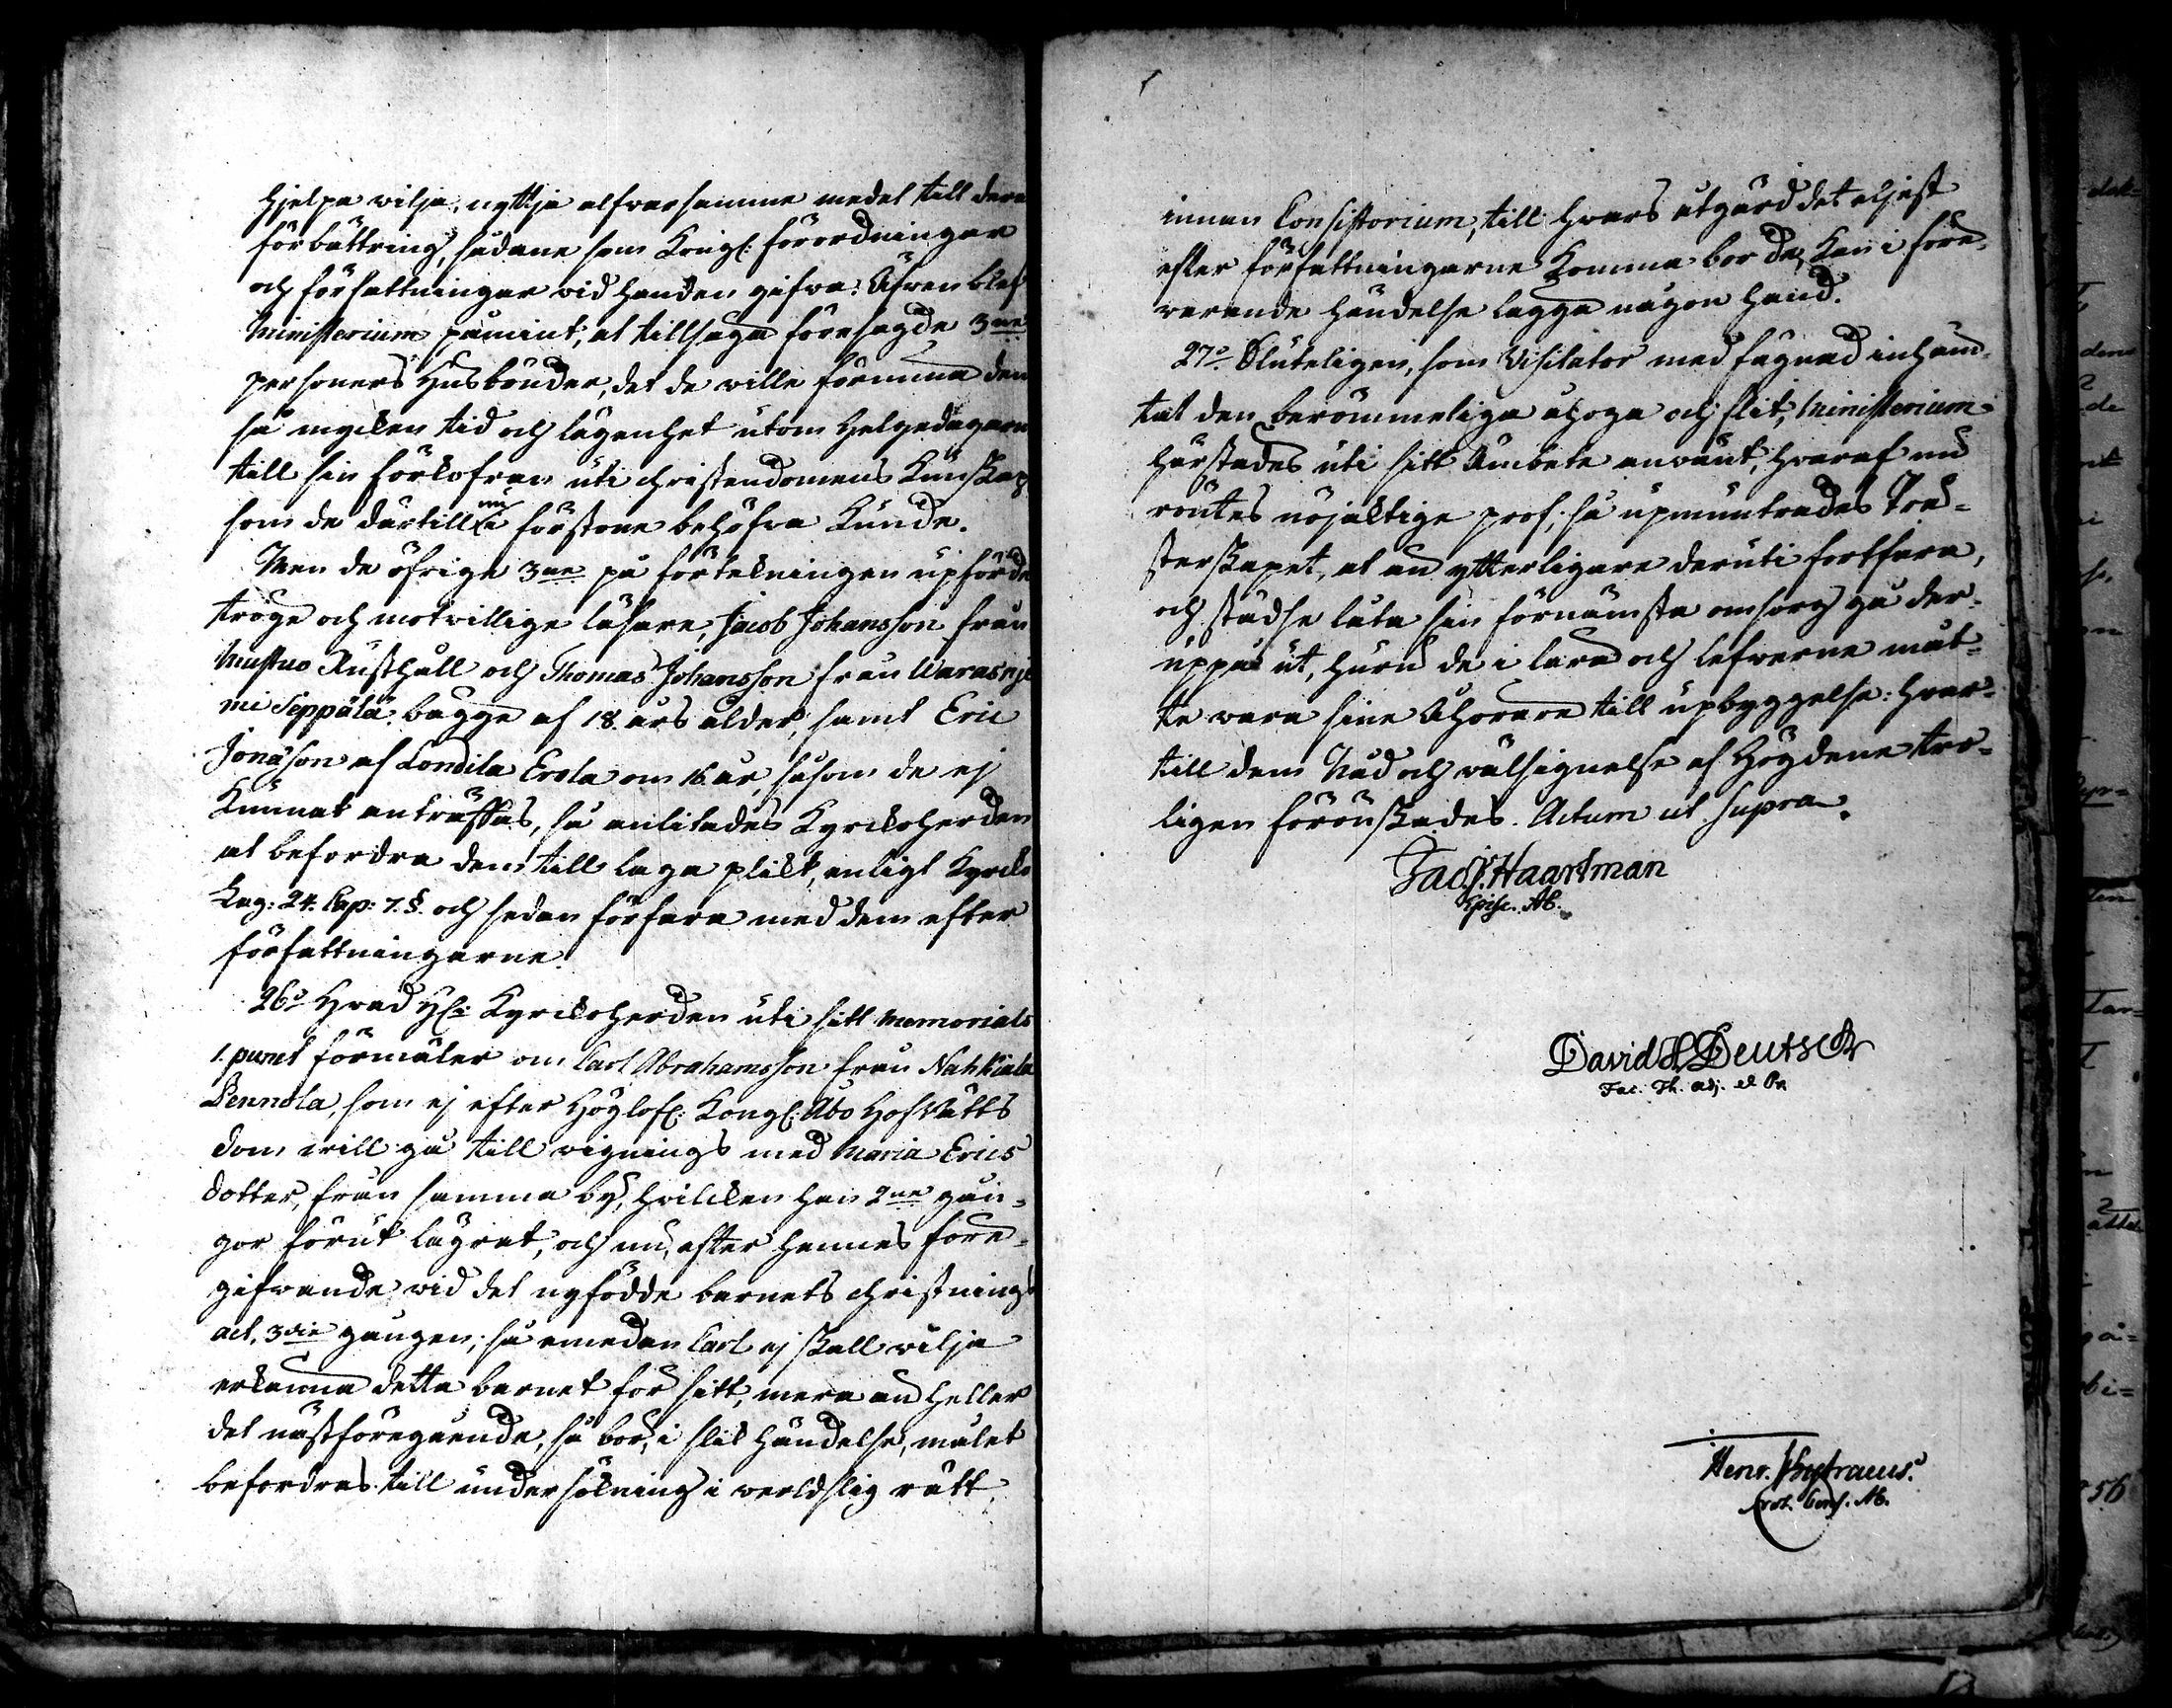 hjelpa wilja, nyttja alfwarsamme medel till dera
förbättring, sådane som Kongl: förordningar
och författningar wid handen gifwa. Äfwen blef
Ministerium påmint, at tillsäga föresagde 3ne
personers Husbönder, det de wille förmuna dem
så mycken tid och lägenhet utom Helgedagarn
till sin förkofran uti christendomens Kunskap
som de därtill nu förstone behöfwa kunde.
Men de öfrige 3ne på förtekningen upförde
tröge och motvillige läsare, Jacob Johansson från
Mustuo Rusthåll och Thomas Johansson från Warasnje
mi Seppälä bägge af 18. års ålder, samt Eric
Jonasson af Londila Erola om 16 år, såsom de ej
kunnat anträffas, så anlitades Kyrckoherden
at befordra dem till laga plickt, enligt Kyrcko
Lag: 24. Cap: 7. §. och sedan förfara med dem efter
författningarne.
26o Hwad H: Kyrckoherden uti sitt Memorials
1. punct förmäler om Carl Abrahamsson från Nahkiala
Pennola, som ej efter Höglofl: Kongl: Åbo HofRätts
dom will gå till wignings med Maria Erics
dotter, från samma by, hwilcken han 2ne gån-
gor förut lägrat, och nu, efter hennes före-
gifwande wid det nyfödde barnets christnings
act, 3die gången; så emedan Carl ej skall wilja
erkänna detta barnet för sitt, mera än heller
det nästföregående, så bör, i slik händelse, målet
befordras till undersökning i werldslig rätt,
innan Consistorium, till hwars åtgärd det eljest
efter författningarne komma borde, kan i före-
warande händelse lägga någon hand.
27o Sluteligen, som Visitator med fägnad inhäm-
tat den berömmeliga åhoga och flit, Ministerium
härstädes uti sitt Ämbete anwänt, hwaraf nu
röntes nöjaktige prof; så upmuntrades Pre-
sterskapet, at än ytterligare deruti fortfara,
och städse låta sin förnämsta omsorg gå der-
uppå ut, huru de i lära och lefwerne måt-
te wara sine Åhörare till upbyggelse: hwar-
till dem Nåd och wälsignelse af Högdene tro-
ligen förönskades. Actum ut supra.
Jac. J. Haartman
Episc. Ab.
David H Deutsch
Fac. Th. adj. et Pr.
Henr. Chytraeus.
Not. Cons. Ab.